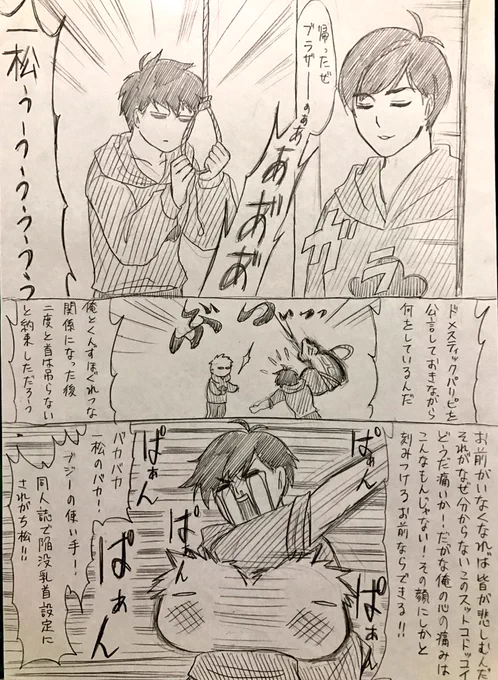 帰ったぜ
ブラザーのぁあ
あ゛あ゛お゛
ガラ
一松ぅーぅーぅーぅぅぅ
ドメスティックパリピを
公言しておきながら
何をしているんだ
ぶつぃ
俺とくんずほぐれつな
関係になった後
二度と首は吊らない
と約束しただろぅ
お前がいなくなれば皆が悲しむんだ
それがなぜ分からないこのスットコドッコイ
どうだ痛いか!だがな俺の心の痛みは
こんなもんじゃない!その顔にしかと
刻みつけろお前ならできる!!
ぱぁん
ぱぁん
ぱぁん
ぱぁん
ぱぁん
バカバカ
一松のバカ!
ブジーの使い手!
同人誌で陥没乳首設定に
されがち松!!